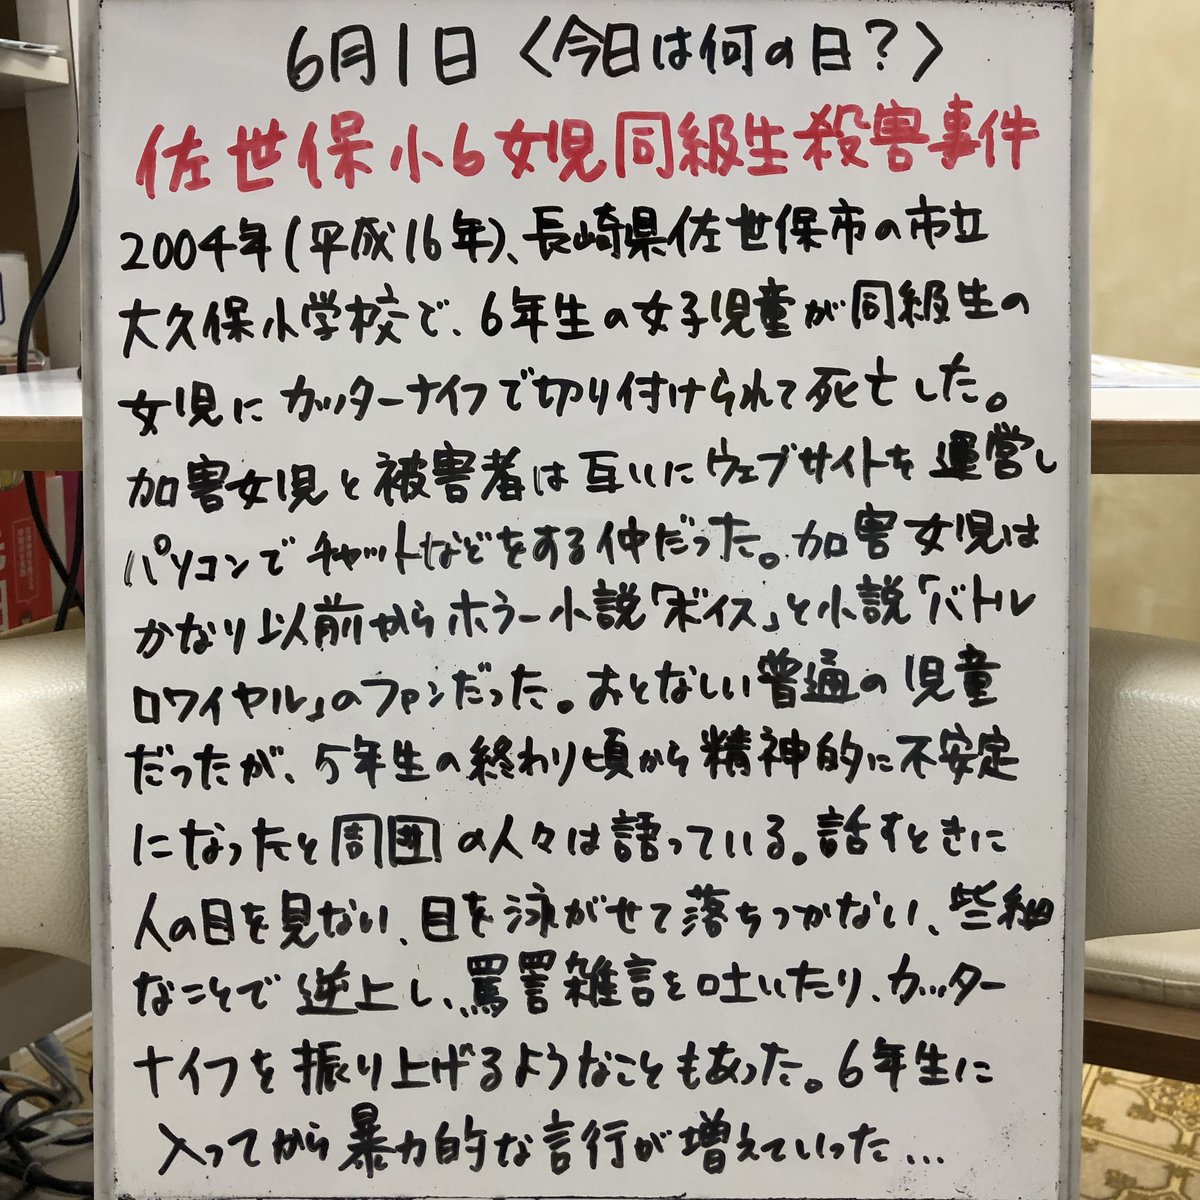 6月1日〈今日は何の日？〉
佐世保小6女児同級生殺害事件
2004年(平成16年)、長崎県佐世保市の市立
大久保小学校で、6年生の女子児童が同級生の
女児にカッターナイフで切り付けられて死亡した。
加害女児と被害者は互いにウェブサイトを運営し
パソコンでチャットなどをする仲だった。加害女児は
かなり以前からホラー小説「ボイス」と小説「バトル
ロワイヤル」のファンだった。おとなしい普通の児童
だったが、5年生の終わり頃から精神的に不安定
になったと周囲の人々は語っている。話すときに
人の目を見ない、目を泳がせて落ちつかない、些細
なことで逆上し、罵詈雑言を吐いたり、カッター
ナイフを振り上げるようなこともあった。6年生に
入ってから暴力的な言行が増えていった...